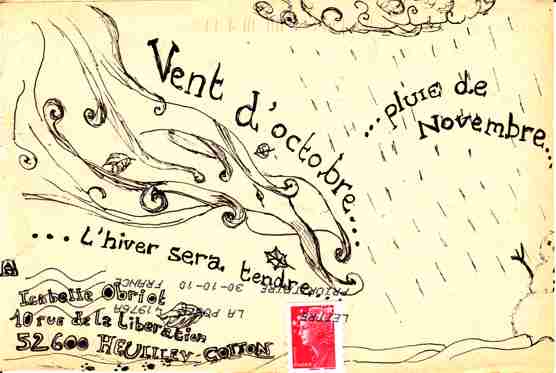 Vent d'octobre...
...pluie de
Novembre...
...L'hiver sera tendre...
Isabelle Obriot
10 rue de la Liberation
52600 HEUILLEY-COTTON
LETTRE
PRIORITAIRE
30-10-10
FRANCE
LA POSTE
41976A